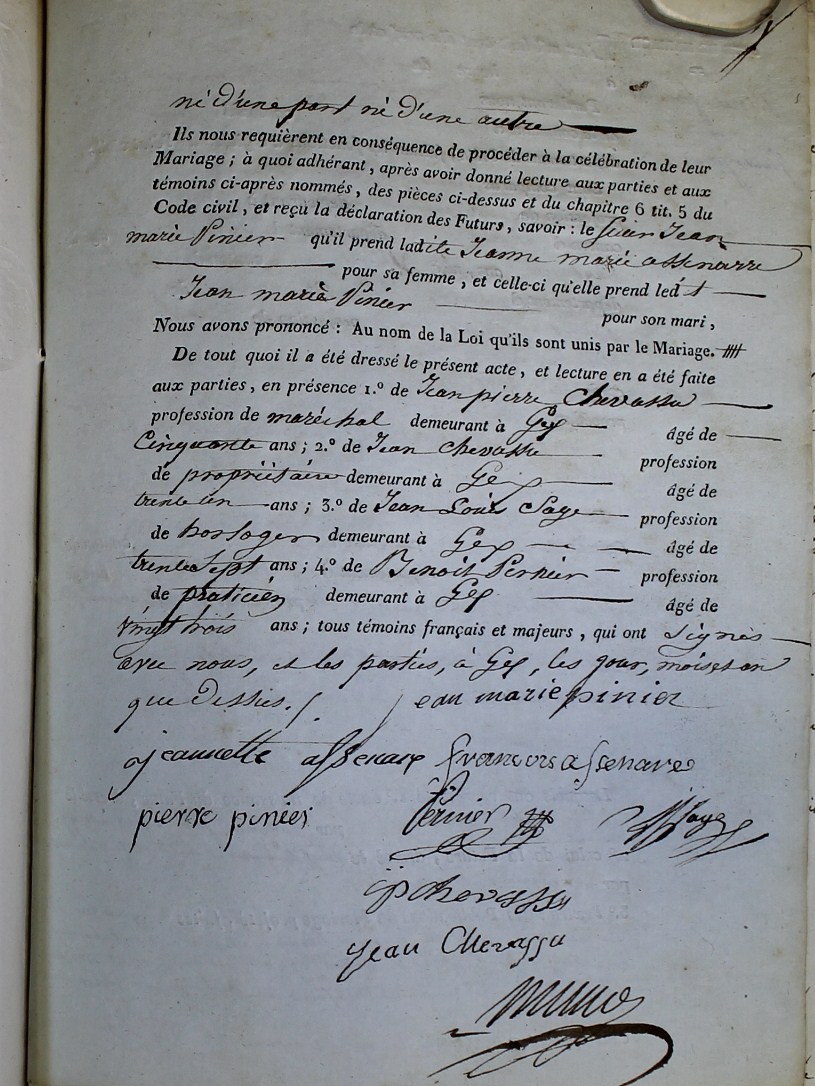 né d'une part né d'une autre
Ils nous requièrent en conséquence de procéder à la célébration de leur
Mariage ; à quoi adhérant, après avoir donné lecture aux parties et aux
témoins ci-après nommés, des pièces ci-dessus et du chapitre 6 tit. 5 du
Code civil, et reçu la déclaration des Futurs, savoir : le sieur Jean
marie Pinier qu'il prend ladite Jeanne marie assenarre
pour sa femme, et celle-ci qu'elle prend ledt
Jean marie Pinier pour son mari,
Nous avons prononcé : Au nom de la Loi qu'ils sont unis par le Mariage.
De tout quoi il a été dressé le présent acte, et lecture en a été faite
aux parties, en présence 1.º de Jean pierre Chevassu
profession de maréchal demeurant à Gex âgé de
Cinquante ans ; 2.º de Jean Chevassu profession
de propriétaire demeurant à Gex âgé de
trente un ans ; 3.º de Jean Louis Saye profession
de horloger demeurant à Gex âgé de
trente sept ans ; 4.º de Benoit Pernier profession
de praticien demeurant à Gex âgé de
vingt trois ans ; tous témoins français et majeurs, qui ont signés
avec nous, et les parties, à Gex, les jour, mois et an
que dessus.
jean marie pinier
jeannette assenare francois assenare
pierre pinier Pernier Saye
jp chevassu
jean Chevassu